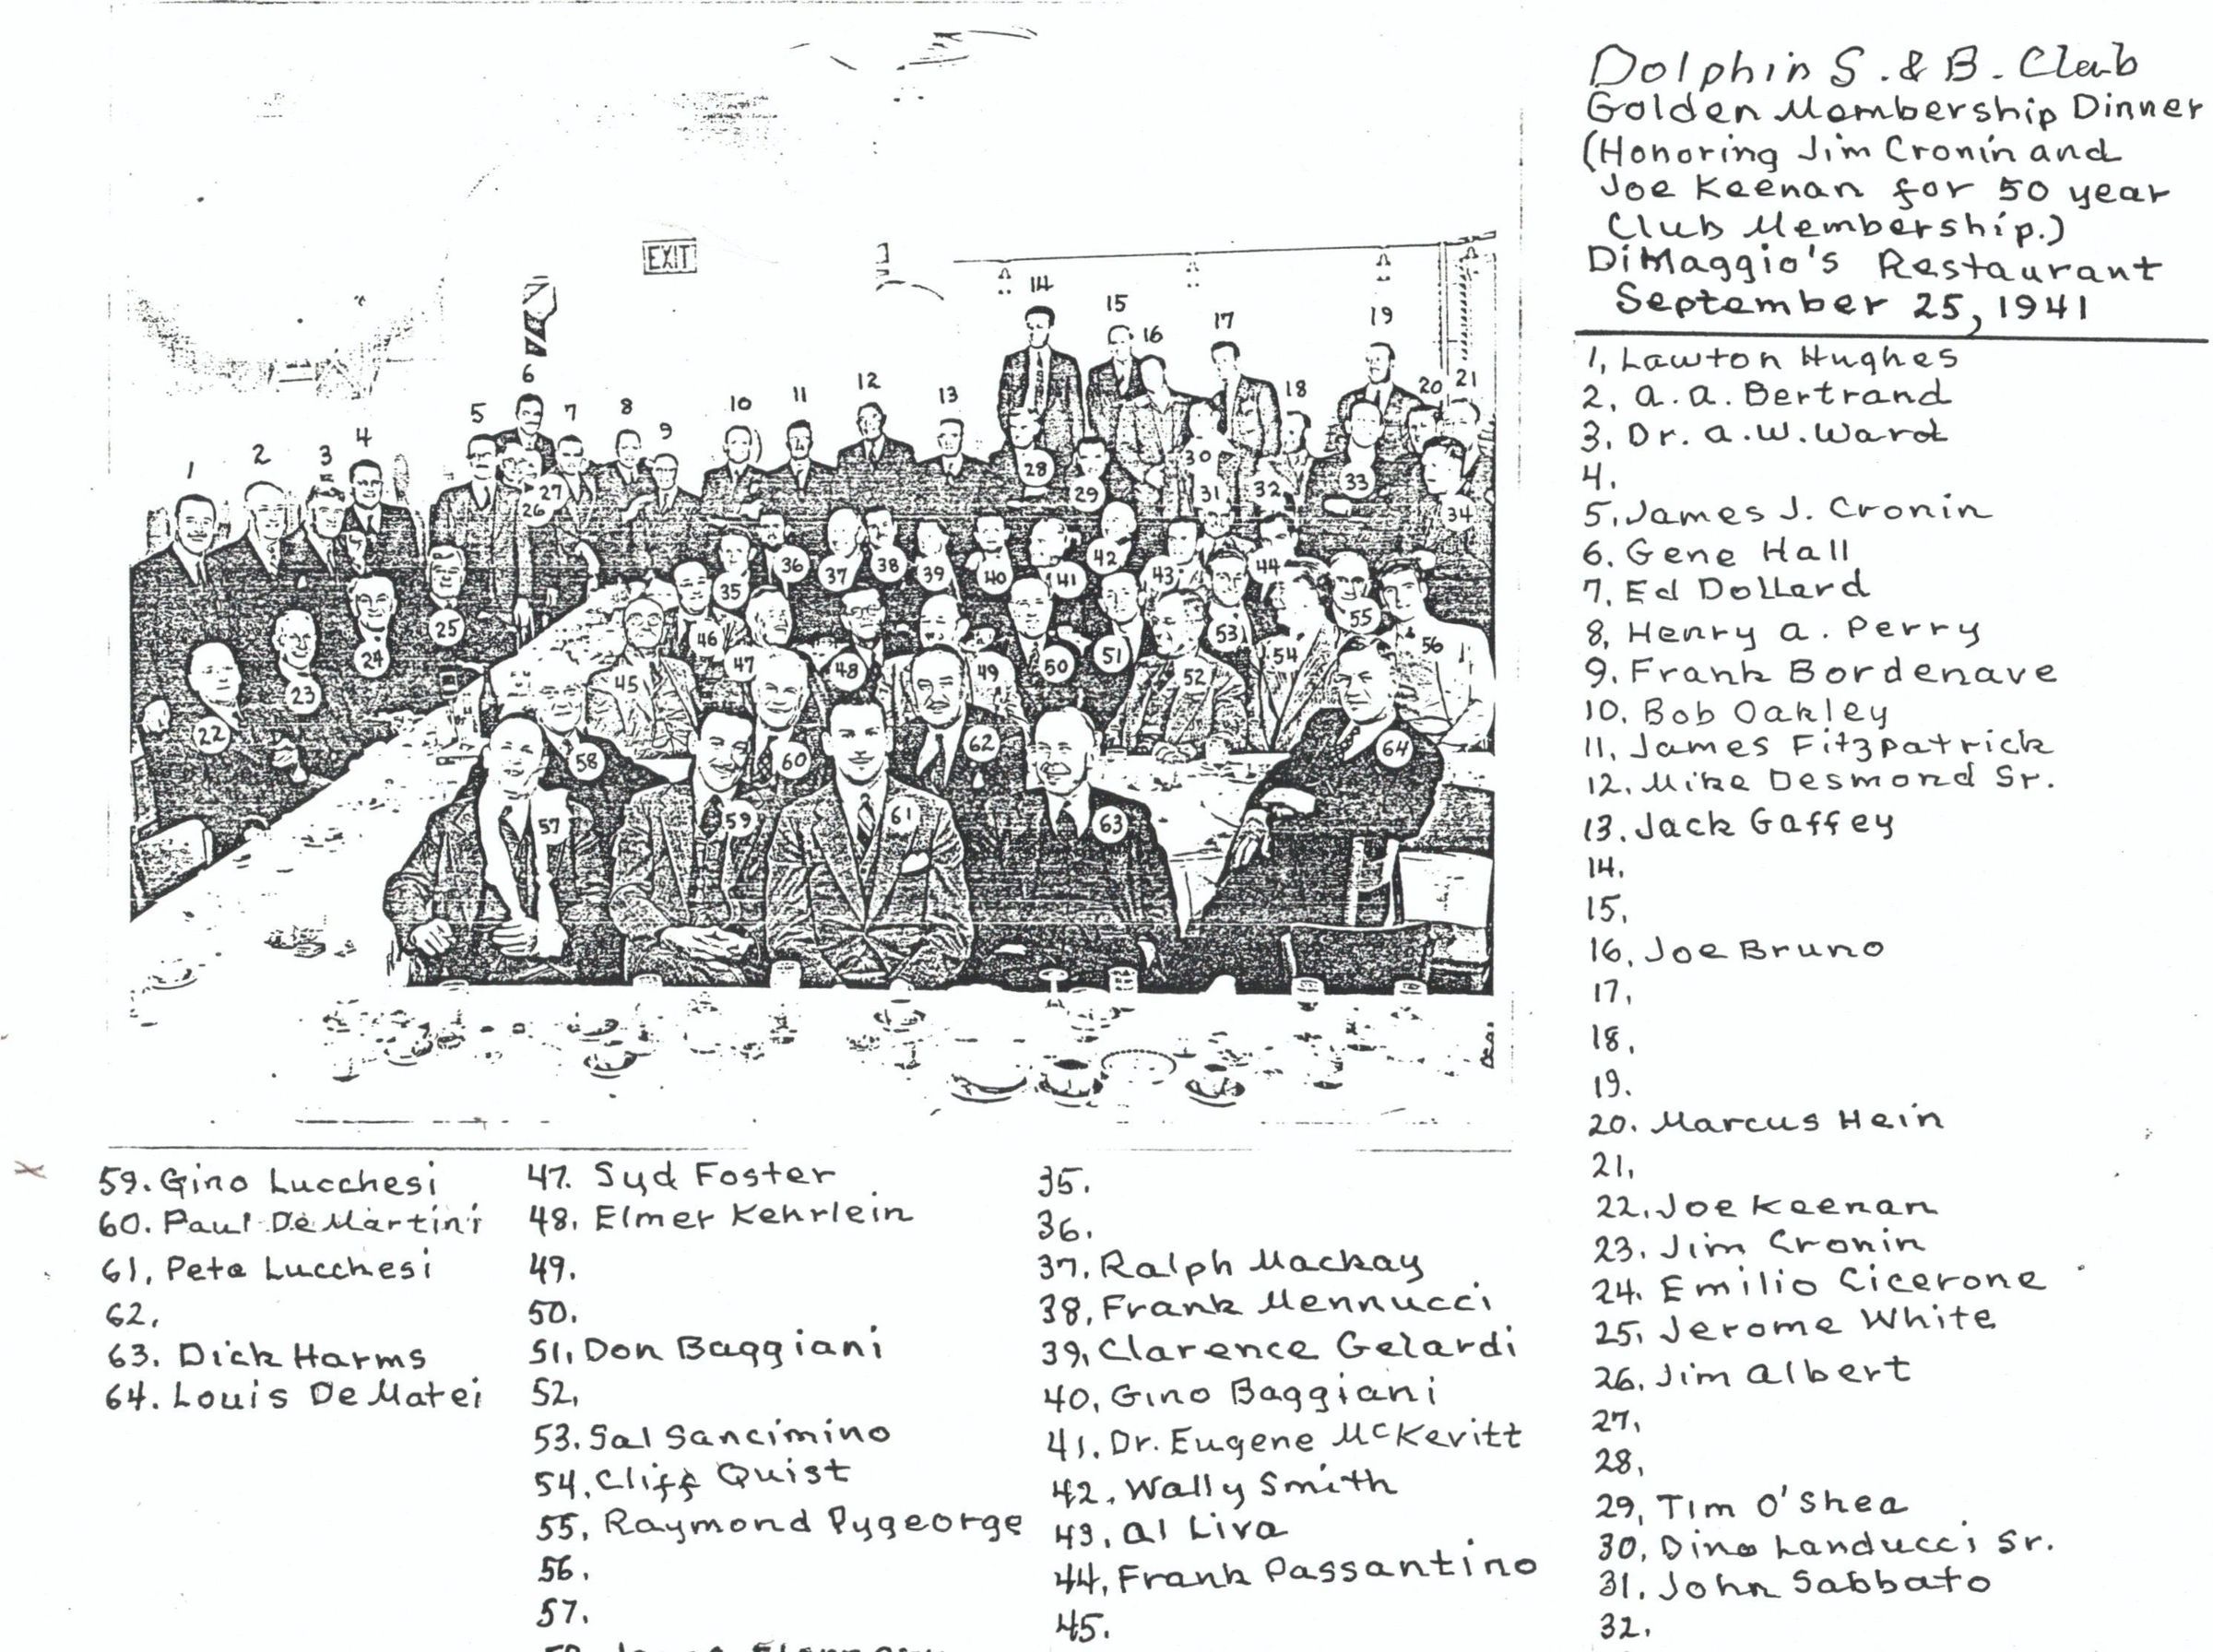 Dolphin S. & B. Club
Golden Membership Dinner
(Honoring Jim Cronin and
Joe Keenan for 50 year
Club Membership.)
DiMaggio's Restaurant
September 25, 1941
1, Lawton Hughes
2, A. A. Bertrand
3, Dr. A. W. Ward
4.
5, James J. Cronin
6. Gene Hall
7, Ed Dollard
8, Henry A. Perry
9. Frank Bordenave
10. Bob Oakley
11, James Fitzpatrick
12. Mike Desmond Sr.
13. Jack Gaffey
14.
15,
16, Joe Bruno
17,
18,
19.
20. Marcus Hein
21,
22, Joe Keenan
23. Jim Cronin
24. Emilio Cicerone
25, Jerome White
26, Jim Albert
27,
28,
29, Tim O'Shea
30, Dino Landucci Sr.
31. John Sabbato
32.
35.
36.
37. Ralph Mackay
38, Frank Mennucci
39, Clarence Gelardi
40, Gino Baggiani
41. Dr. Eugene McKevitt
42, Wally Smith
43, Al Liva
44, Frank Passantino
45.
47. Syd Foster
48, Elmer Kehrlein
49.
50.
51, Don Baggiani
52,
53. Sal Sancimino
54, Cliff Quist
55, Raymond Pygeorge
56.
57.
59. Gino Lucchesi
60. Paul De Martini
61, Pete Lucchesi
62,
63. Dick Harms
64. Louis De Matei
EXIT
1
2
3
4
5
6
7
8
9
10
11
12
13
14
15
16
17
18
19
20
21
22
23
24
25
26
27
28
29
30
31
32
33
34
35
36
37
38
39
40
41
42
43
44
45
46
47
48
49
50
51
52
53
54
55
56
57
58
59
60
61
62
63
64